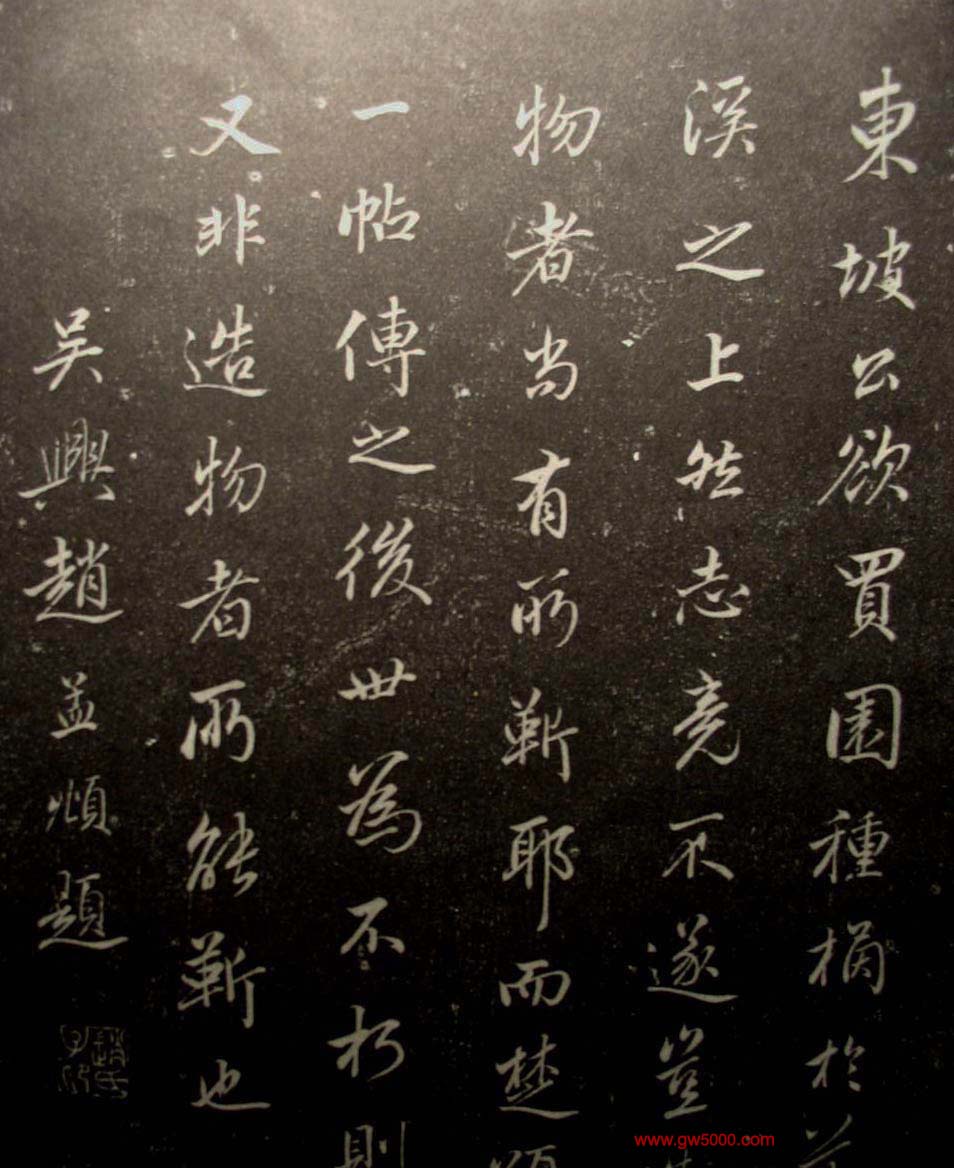 東坡公欲買園種橘於
溪之上然志竟不遂豈
物者尚有所靳耶而楚
一帖傳之後世為不朽則
又非造物者所能靳也
吳興趙孟頫題
趙氏子昂
www.gw5000.com